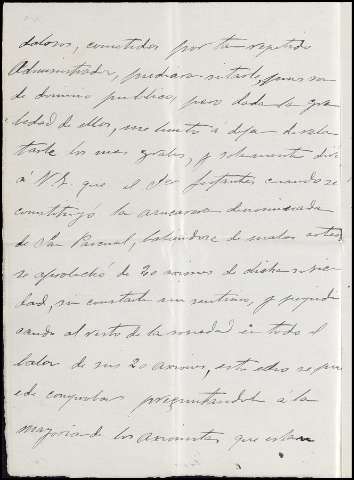 dolosos, cometidos por tan repetido
Administrador, pudiera citarle, pues son
de dominio publico, pero dada la gra
bedad de ellos, me limito á dejar de rela
tarle los mas graves, y solamente diré
á V.S. que el Sor cuando se
constituyó la azucarera denominada
de San Pascual, baliendose de malas artes,
se aprobechó de 20 acciones de dicha socie
dad, sin costarle un centimo, y perjudi
cando al resto de la sociedad en todo el
balor de sus 20 acciones, esto ello se pu
ede comprobar preguntandole á la
mayoria de los accionistas que estan